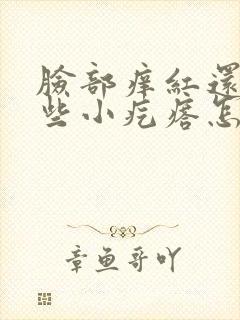 臉部痒紅還
些小疙瘩怎
章鱼哥吖